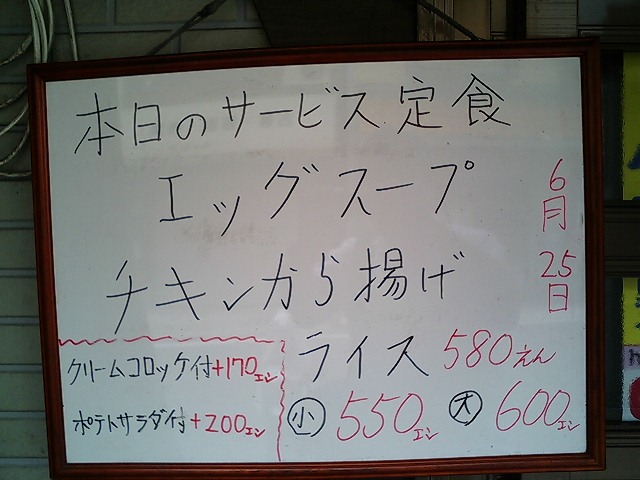 本日のサービス定食
エッグスープ
チキンから揚げ
ライス 580えん
小 550エン 大 600エン
クリームコロッケ付+170エン
ポテトサラダ付+200エン
6月25日